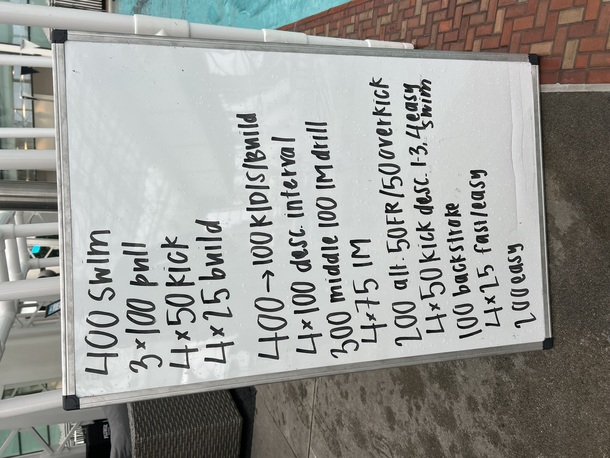 400 swim
3x100 pull
4x50 kick
4x25 build
400 → 100 K/D/S/Build
4x100 desc. interval
300 middle 100 IM drill
4x75 IM
200 alt. 50FR/50 overkick
4x50 kick desc. 1-3, 4 easy swim
100 backstroke
4x25 fast/easy
200 easy